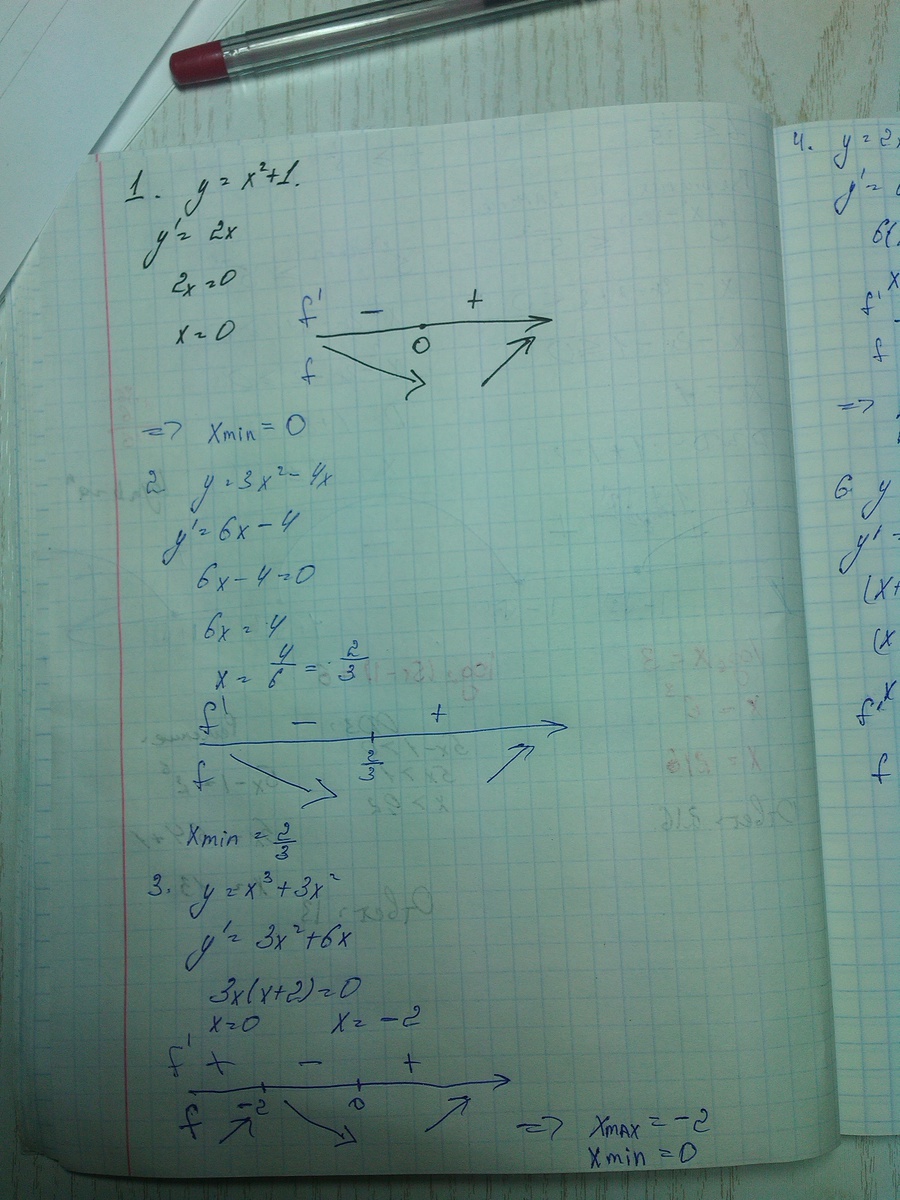 1. y = x²+1.
y' = 2x
2x=0
x=0
f' - +
0
f
=> xmin = 0
2 y=3x²-4x
y'=6x-4
6x-4=0
6x=4
x= 4/6 = 2/3
f' - +
2/3
f
xmin = 2/3
3. y=x³+3x²
y'= 3x²+6x
3x(x+2)=0
x=0 x= -2
f' + - +
-2 0
f
=> xmax = -2
xmin = 0
4. y=2x
y'=
6(
x
f'
f
=>
6 y
y' =
(x+
(x
x
f'
f